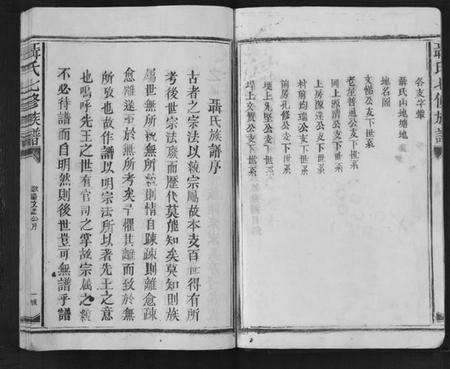 聶氏七修族譜
各支字輩
聶氏山地墳地
地名圖
支㒓公支下世系
老屋普通公支下世系
國上原清公支下世系
上房原達公支下世系
村前均瑞公支下世系
前房孔修公支下世系
堤上先堅公支下世系
堤上文質公支下世系
聶氏族譜序
古者之宗法以統宗屬故本支百世得有所
考後世宗法廢而歷代莫能知矣莫知則族
屬世無所統無所統則情自踈踈則離愈踈
愈離遂至於無所考矣予懼其離而致於無
所攷也故作譜以明宗法所以著先王之意
也嗚呼先王之世有官司之掌故宗屬之
不必待譜而自明然則後世豈可無譜乎譜
聶氏七修族譜